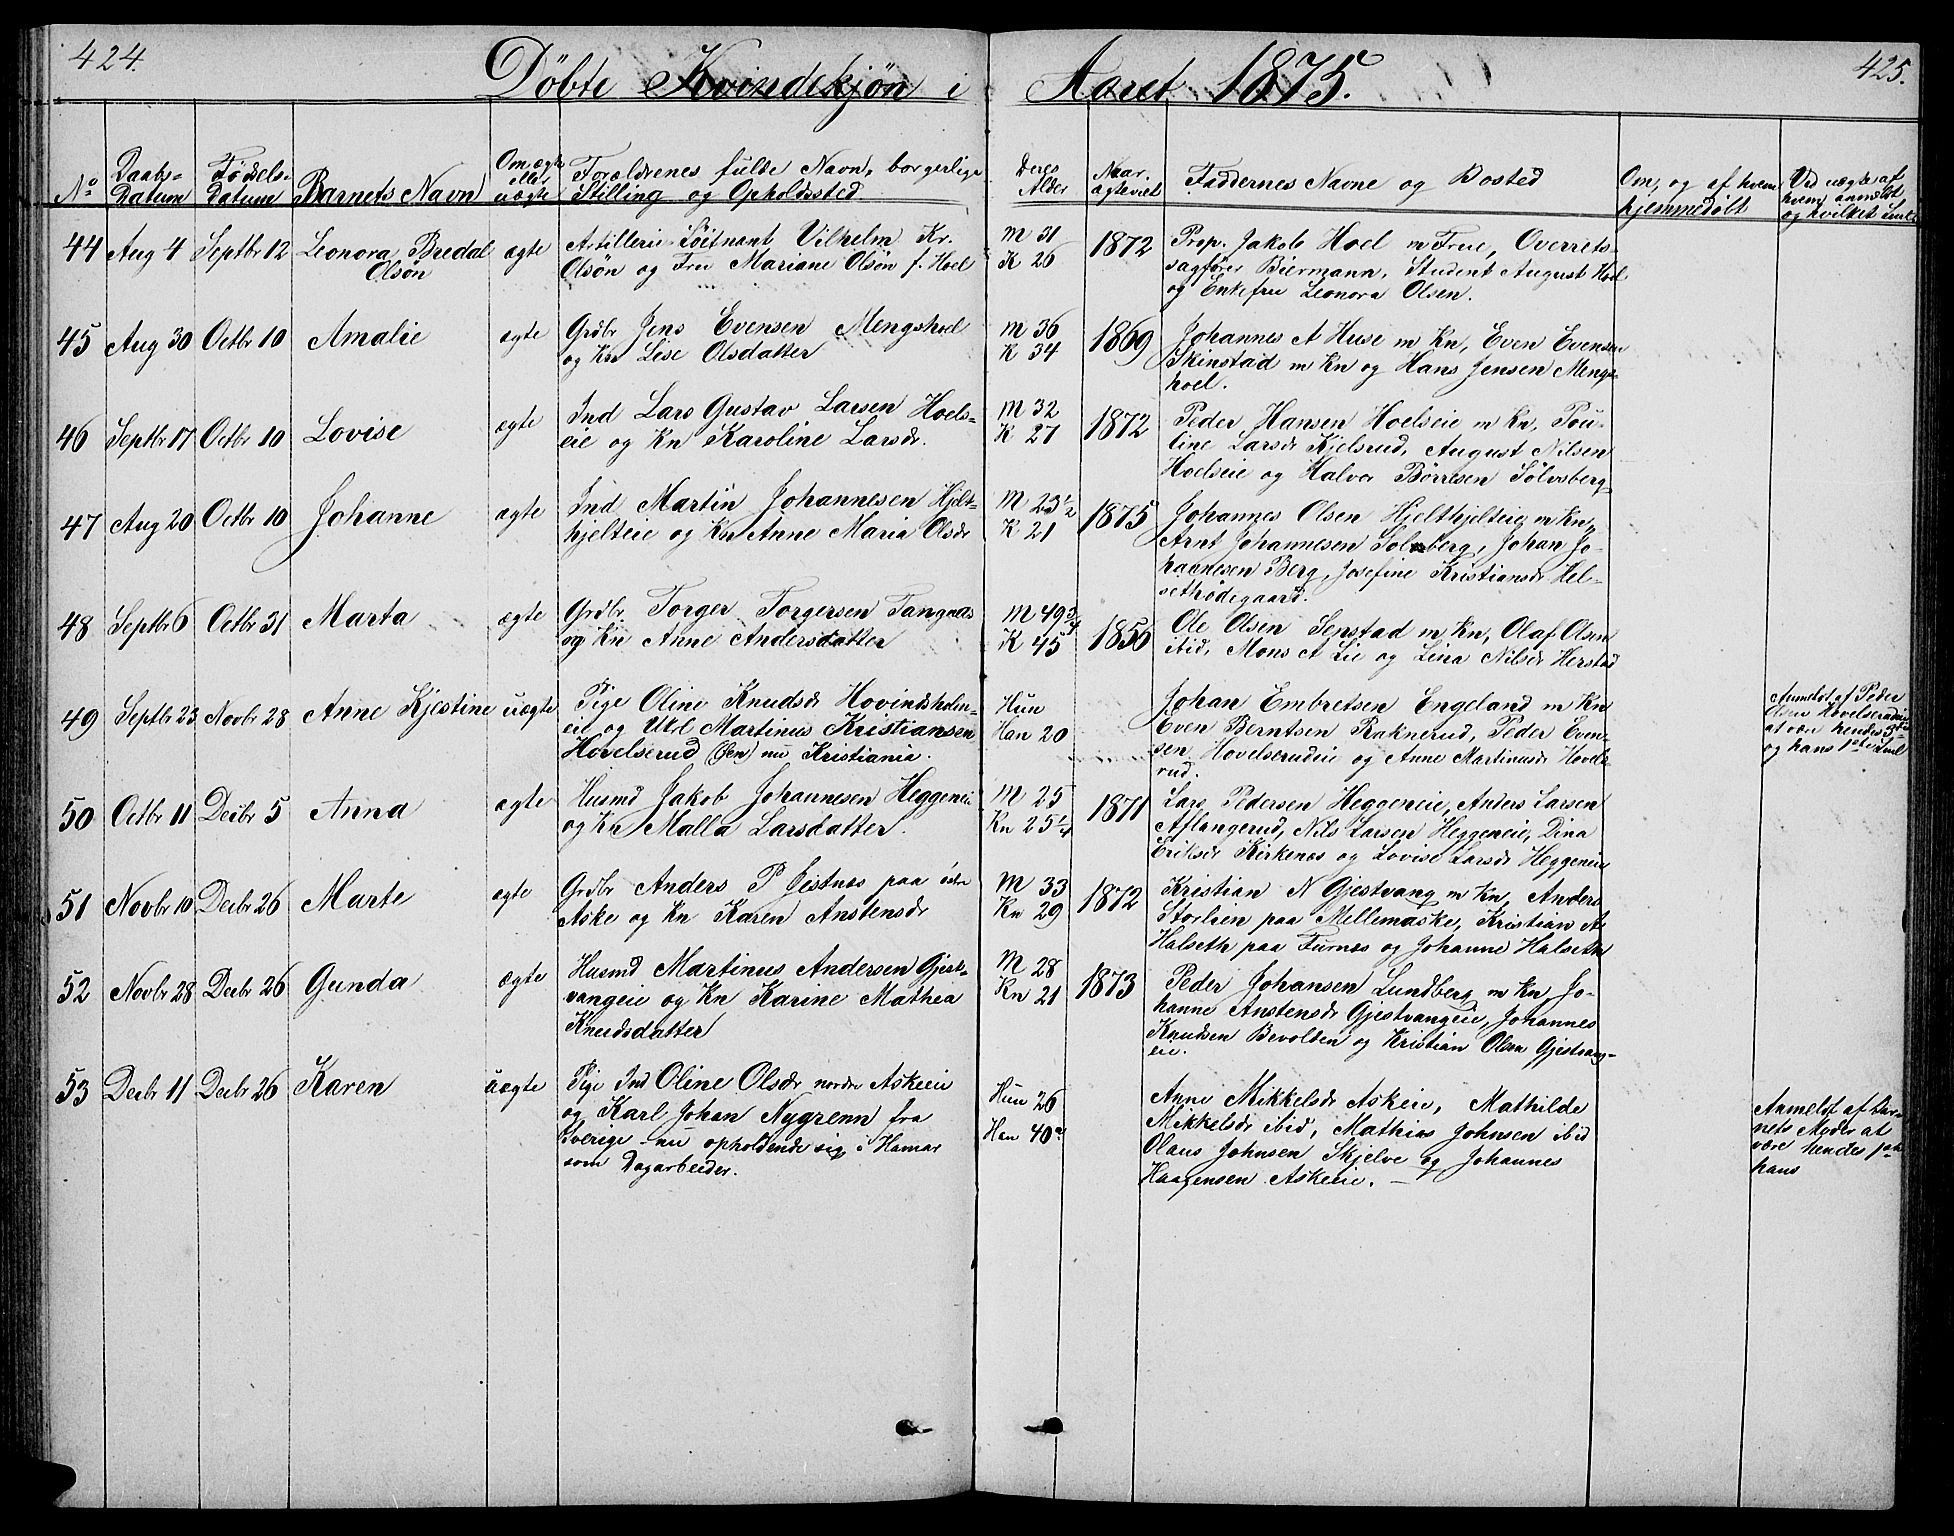 424.
Döbte Kvindekjön i Aaret 1875.
425.
No
Daabs-
Datum
Fødsels-
Datum
Barnets Navn
Om ægte
eller
uægte
Forældrenes fulde Navn, borgerlige
Stilling og Opholdssted.
Deres
Alder
Naar
ægteviet
Faddernes Navne og Bosted
Om, og af hvem
hjemmedøbt
Ved uægte af
hvem anmeldt
og hvilket Leiel
44 Aug 4 Septbr 12 Leonora Bredal
Olsön
ægte
Artillerie-Löitnant Vilhelm Kr.
Olsön og Fru Mariane Olsön f. Hoel
M 31
K 26
1872
Prop. Jakob Hoel m Frue, Overrets-
sagfører Biermann, Student August Hoel
og Enkefru Leonora Olsen.
45 Aug 30 Octbr 10 Amalie ægte
Grdbr Jens Evensen Mengshoel
og Kn Lise Olsdatter
M 36
K 34
1869
Johannes A Huse m Kn, Even Evensen
Skinstad m Kn og Hans Jensen Mengs-
hoel.
46 Septbr 17 Octbr 10 Lovise ægte
Ind Lars Gustav Larsen Hoels-
eie og Kn Karoline Larsdr.
M 32
K 27
1872
Peder Hansen Hoelseie m Kn, Pou-
line Larsdr Kjelsrud, August Nilsen
Hoelseie og Halvor Börresen Sölvsberg
47 Aug 20 Octbr 10 Johanne ægte
Ind Martin Johannesen Hjelt-
hjelteie og Kn Anne Maria Olsdr
M 23 1/2
K 21
1875
Johannes Olsen Hjelthjelteie m Kn,
Arnt Johannesen Solberg, Johan Jo-
hannesen Berg, Josefine Kristiansdr Hel-
sethødegaard.
48 Septbr 6 Octbr 31 Marta ægte
Grdbr. Torger Torgersen Tangnæs
og Kn Anne Andersdatter
M 49 3/4
K 45
1856
Ole Olsen Senstad m Kn, Olaf Olsen
ibid, Mons A Lie og Lina Nilsdr Herstad
49 Septbr 23 Novbr 28 Anne Kjestine uægte
Pige Oline Knudsdr Hovindsholm-
eie og Ukl Martinus Kristiansen
Hovelserud (Sen) nu Kristiania.
Hun
Han 20
Johan Embretsen Engeland m Kn
Even Berntsen Raknerud, Peder Even-
sen Hovelserudeie og Anne Martinusdr Hovels-
rud.
Anmeldt af Peder
Olsen Hovelserudeie
at være hendes 5te
og hans 1ste Leiel
50 Octbr 11 Decbr 5 Anna ægte
Husmd Jakob Johannesen Heggeneie
og Kn Malla Larsdatter.
M 25
Kn 25 1/4
1871
Lars Pedersen Heggeneie, Anders Larsen
Aflangerud, Nils Larsen Heggeneie, Dina
Eriksdr Kirkenes og Lovise Larsdr Heggeneie
51 Novbr 10 Decbr 26 Marte ægte
Grdbr Anders P Jistnæs paa östre
Aske og Kn Karen Anstensdr
M 33
Kn 29
1872
Kristian N Gjestvang m Kn, Anders
Storlsen paa Mellemaske, Kristian A
Halseth paa Furnes og Johanne Halseth
52 Novbr 28 Decbr 26 Gunda ægte
Husmd Martinus Andersen Gjest-
vangeie og Kn Karine Mathea
Knudsdatter
M 28
Kn 21
1873
Peder Johansen Lundberg m Kn, Jo-
hanne Anstensdr Gjestvangeie, Johannes
Knudsen Bevolden og Kristian Olsen Gjestvang-
eie.
53 Decbr 11 Decbr 26 Karen uægte
Pige Ind Oline Olsdr nordre Askeeie
og Karl Johan Nygrenn fra
Sverige nu opholdende sig i Hamar
som Dagarbeider.
Hun 26
Han 40
Anne Mikkelsdr Askeie, Mathilde
Mikkelsdr ibid, Mathias Johnsen ibid
Olaus Johnsen Skjelve og Johannes
Haagensen Askeie.
Anmeldt af Bar-
nets Moder at
være hendes 1ste
hans